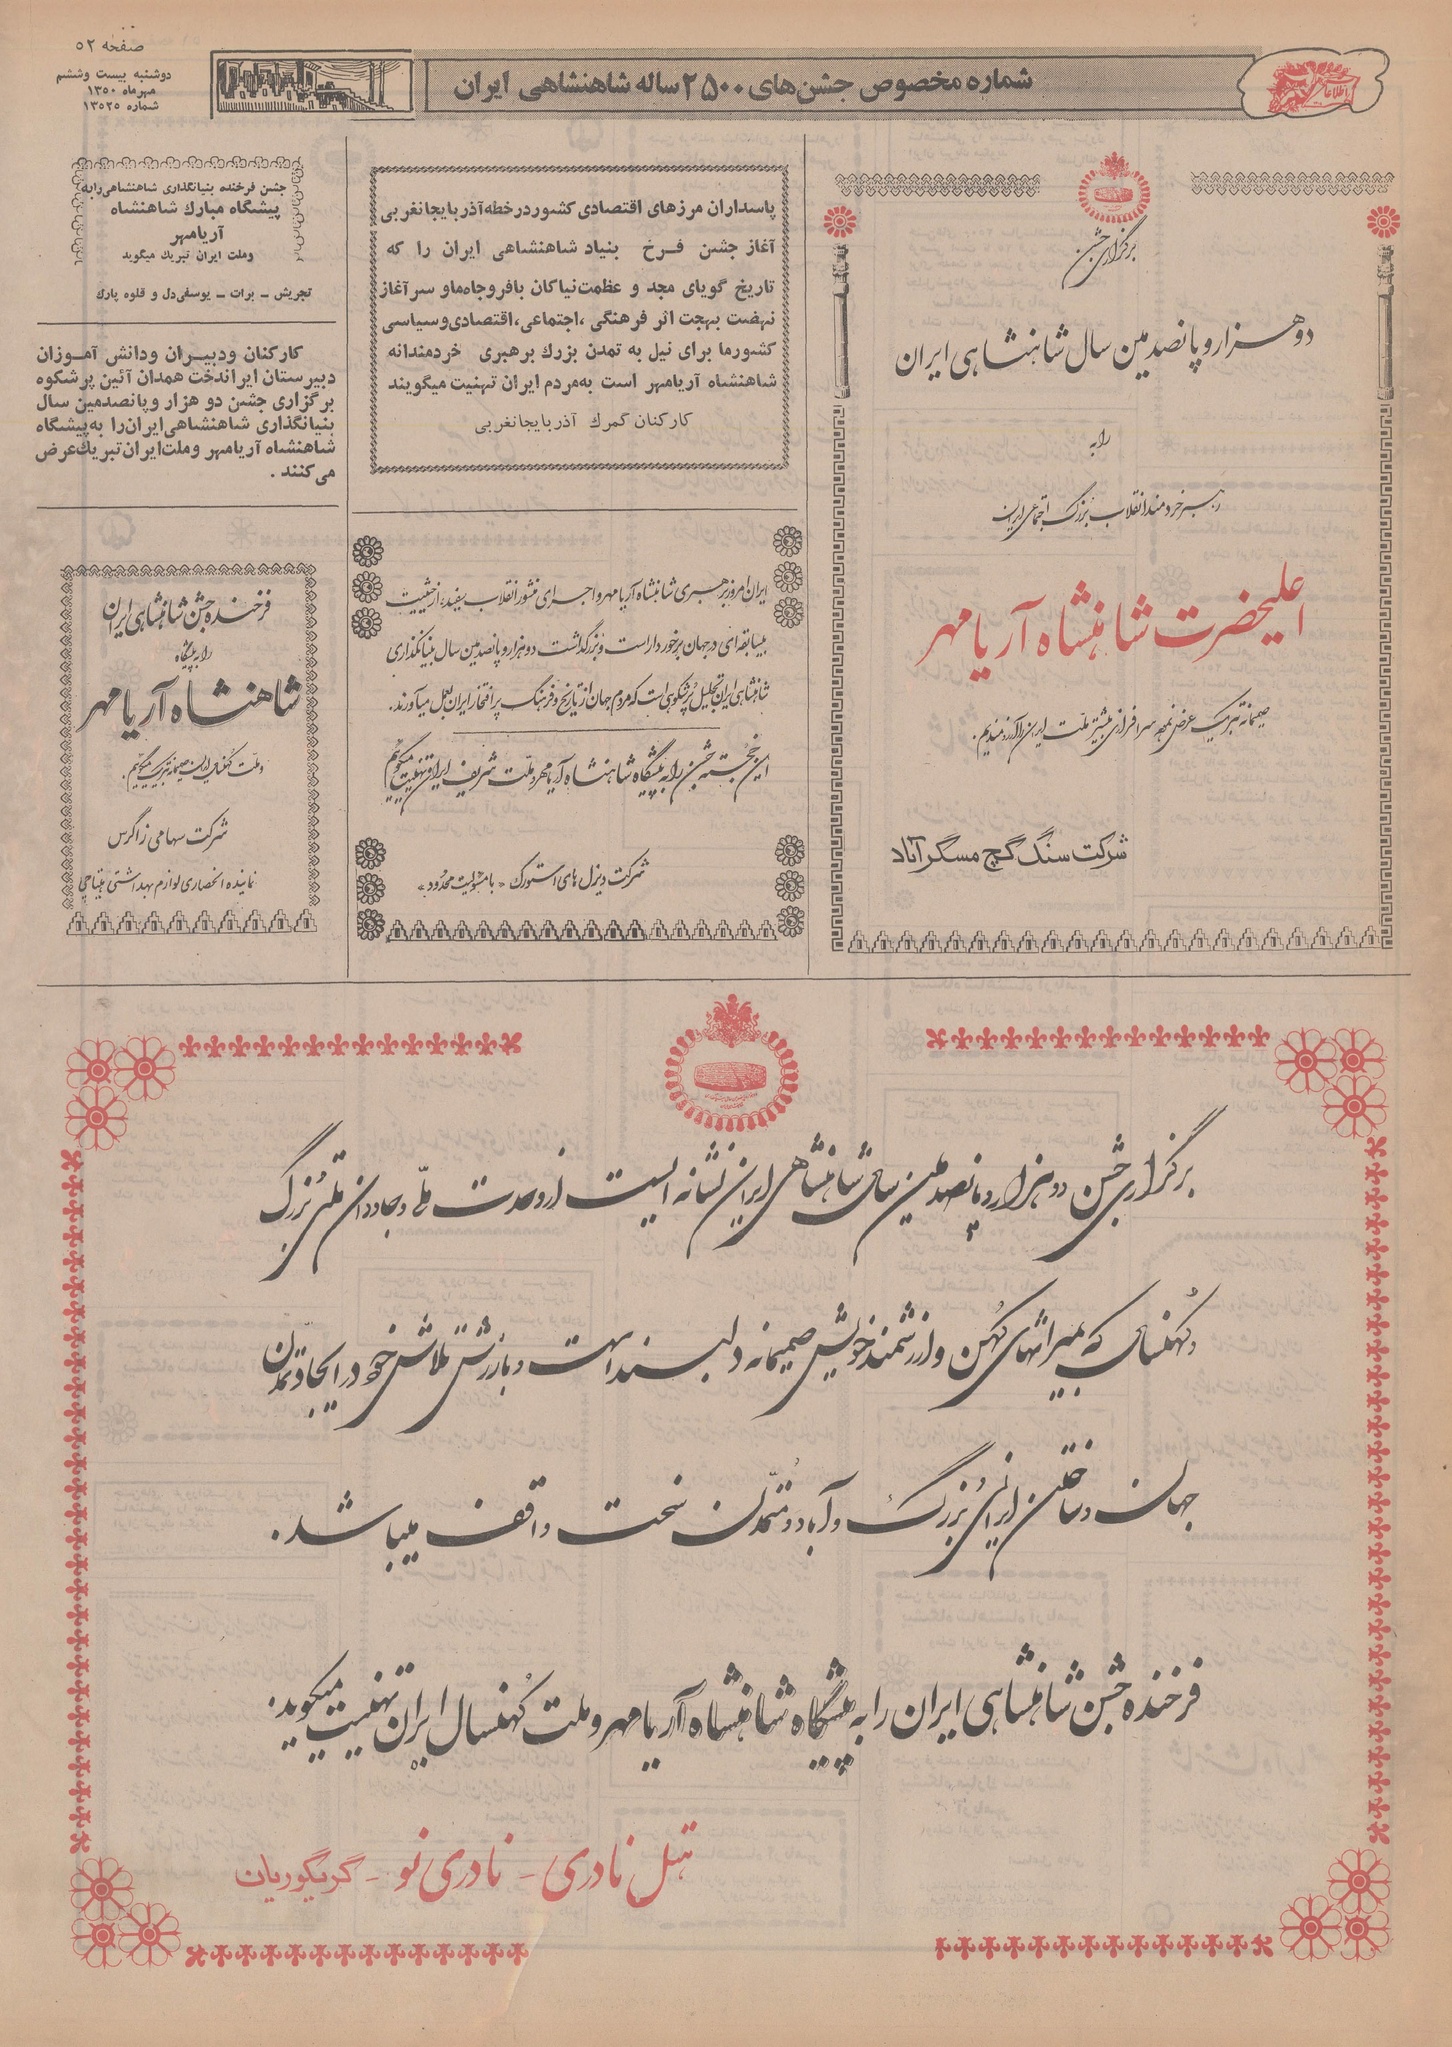 صفحه ۵۲
دوشنبه بیست وششم
مهرماه ۱۳۵۰
شماره ۱۳۵۲۵
شماره مخصوص جشن‌های ۲۵۰۰ ساله شاهنشاهی ایران
اطلاعات
برگزاری جشن
دوهزار و پانصدمین سال شاهنشاهی ایران
را به
رهبر خردمند انقلاب بزرگ اجتماعی ایران
اعلیحضرت شاهنشاه آریامهر
صمیمانه تبریک عرض نموده سرافرازی بیشتر ملت ایران را آرزومندیم.
شرکت سنگ گچ مسگرآباد
پاسداران مرزهای اقتصادی کشور در خطه آذربایجانغربی
آغاز جشن فرخ بنیاد شاهنشاهی ایران را که
تاریخ گویای مجد و عظمت نیاکان بافروجاه ما و سرآغاز
نهضت بهجت اثر فرهنگی ،اجتماعی، اقتصادی و سیاسی
کشورما برای نیل به تمدن بزرك برهبری خردمندانه
شاهنشاه آریامهر است به مردم ایران تهنیت میگویند
کارکنان گمرك آذربایجانغربی
ایران امروز برهبری شاهنشاه آریامهر و اجرای منشور انقلاب سفید، از حیثیت
بیسابقه‌ای در جهان برخوردار است و بزرگداشت دوهزار و پانصدمین سال بنیانگذاری
شاهنشاهی ایران تجلیل پرشکوهی است که مردم جهان از تاریخ و فرهنگ پرافتخار ایران بعمل میآورند.
این خجسته جشن را به پیشگاه شاهنشاه آریامهر و ملت شریف ایران تهنیت میگوئیم
شرکت دیزل های استورک «با مسئولیت محدود»
جشن فرخنده بنیانگذاری شاهنشاهی را به
پیشگاه مبارك شاهنشاه
آریامهر
وملت ایران تبریك میگوید
تجریش ـ برات ـ یوسفی‌دل و قلوه پارك
کارکنان ودبیران ودانش آموزان
دبیرستان ایراندخت همدان آئین پرشکوه
برگزاری جشن دو هزار وپانصدمین سال
بنیانگذاری شاهنشاهی ایران را به پیشگاه
شاهنشاه آریامهر وملت ایران تبریك عرض
می‌کنند .
فرخنده جشن شاهنشاهی ایران
را به پیشگاه
شاهنشاه آریامهر
و ملت کهنسال ایران صمیمانه تبریک میگوئیم.
شرکت سهامی زاگرس
نماینده انحصاری لوازم بهداشتی
برگزاری جشن دوهزار و پانصدمین سال شاهنشاهی ایران نشانه ایست از وحدت ملی و جاودان ملتی بزرگ
و کهنسال که بمیراثهای کهن و ارزشمند خویش صمیمانه دلبسته است و بارزش تلاش خود در ایجاد تمدن
جهان و ساختن ایرانی بزرگ و آباد و متمدن سخت واقف میباشد.
فرخنده جشن شاهنشاهی ایران را به پیشگاه شاهنشاه آریامهر و ملت کهنسال ایران تهنیت میگوید.
هتل نادری ـ نادری نو ـ گریگوریان